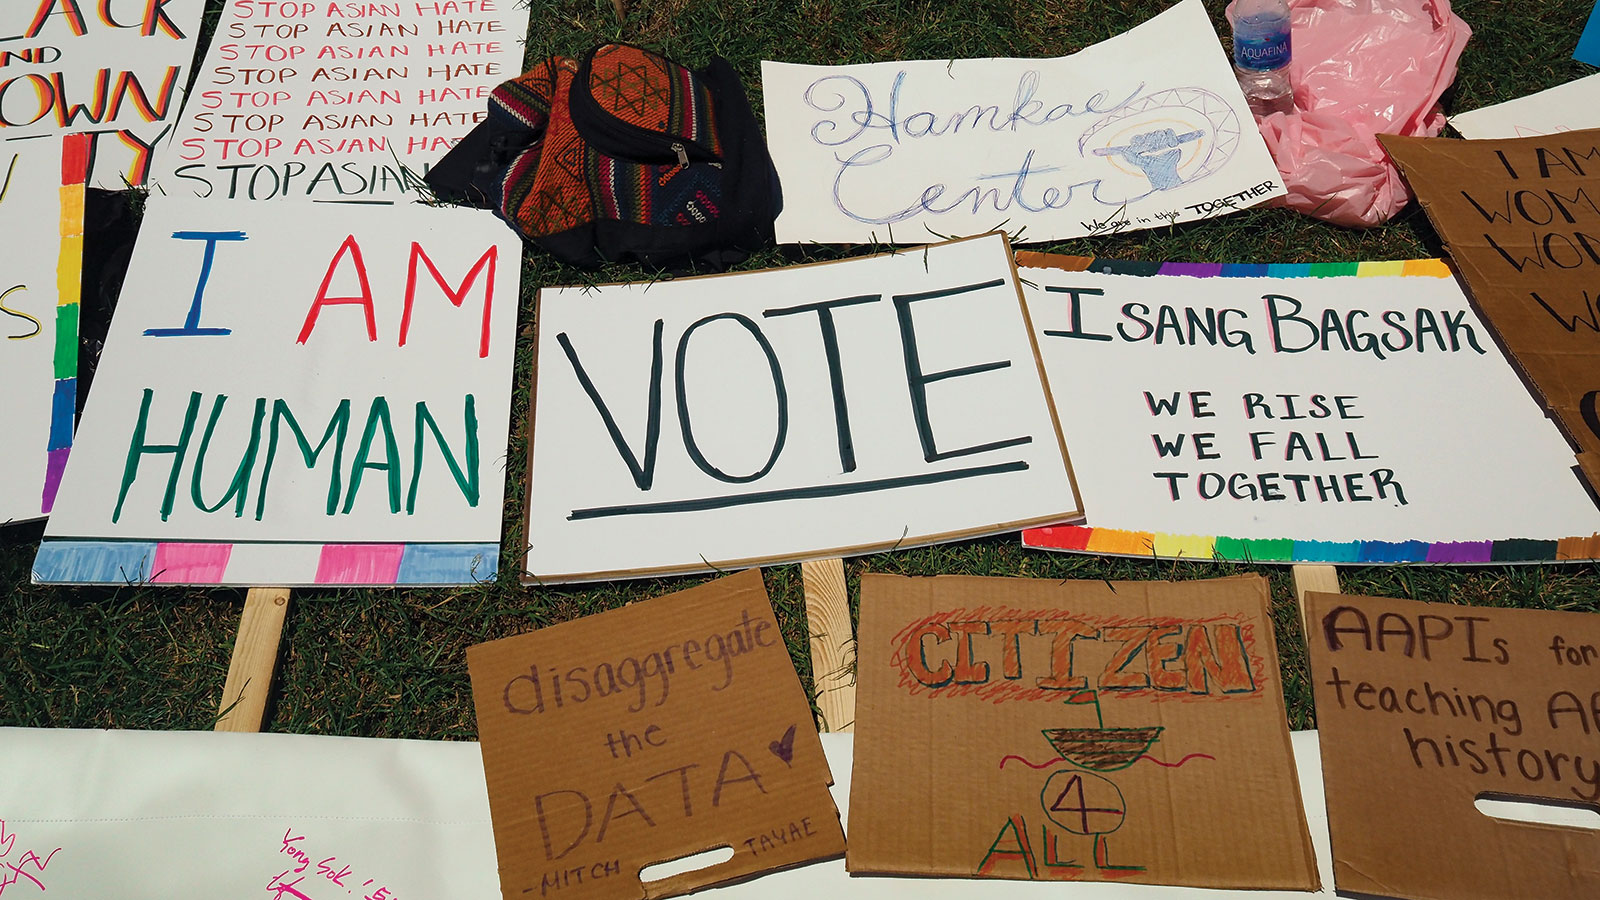 AND
STOP ASIAN HATE
STOP ASIAN HATE
STOP ASIAN HATE
STOP ASIAN HATE
STOP ASIAN HATE
STOP ASIAN HATE
STOP ASIAN
STOP ASIAN
Hamkae
Center
We are in this TOGETHER
AQUAFINA
I AM
I AM
HUMAN
VOTE
ISANG BAGSAK
WE RISE
WE FALL
TOGETHER
disaggregate
the
DATA
-MITCH TAYAE
CITIZEN
4
ALL
AAPIs for
teaching
history
Yong Sok